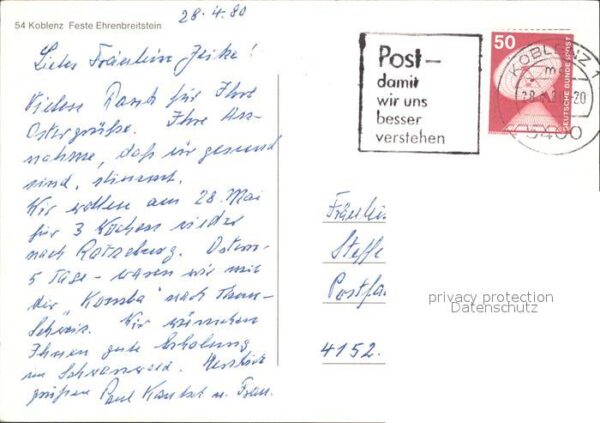 28.4.80
54 Koblenz Feste Ehrenbreitstein
Liebes Fräulein Jeike!
Vielen Dank für Ihre
Ostergrüße. Ihre An-
nahme, daß wir gesund
sind, stimmt.
Wir wollen am 28. Mai
für 3 Wochen wieder
nach Ratzeburg. Ostern -
5 Tage - waren wir mit
der "Komba" nach
Schweiz. Wir wünschen
Ihnen gute Erholung
im Schwarzwald. Herzlich
grüßen Paul und Frau.
Post-
damit
wir uns
besser
verstehen
50
DEUTSCHE BUNDESPOST
KOBLENZ 1
5400
Fräulein
Steffe
Postfa
4152.
privacy protection
Datenschutz